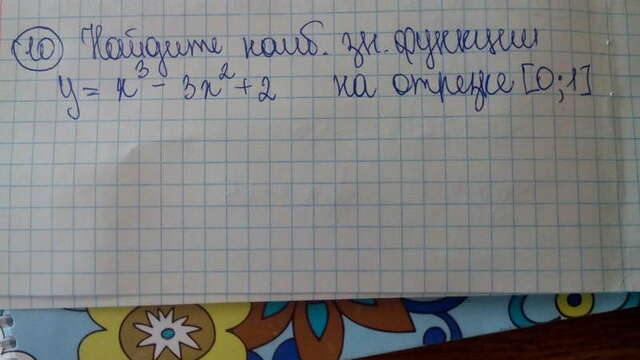 10 Найдите наиб. зн. функции
y = x³ - 3x² + 2 на отрезке [0;1]